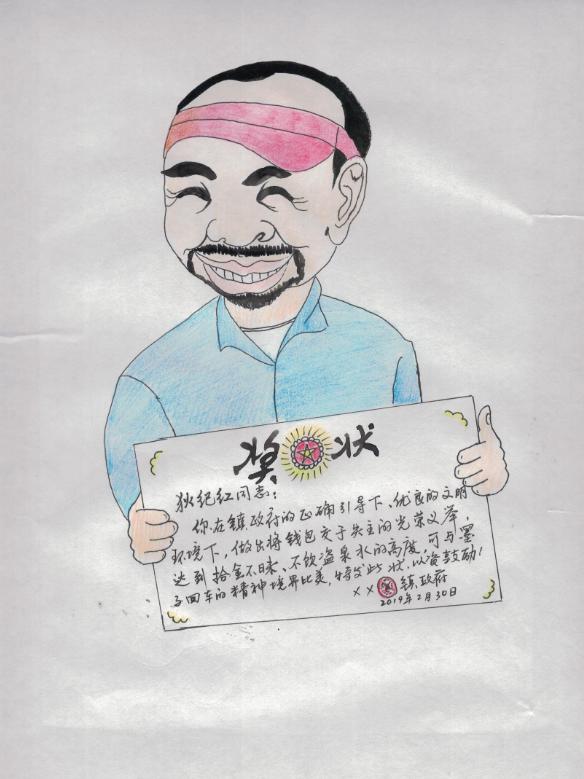 奖状
狄纪红同志：
你在镇政府的正确引导下、优良的文明
环境下，做出将钱包交于失主的光荣义举，
达到拾金不昧、不饮盗泉水的高度，可与墨
子回车的精神境界比美，特发此状，以资鼓励！
××镇政府
2019年2月30日